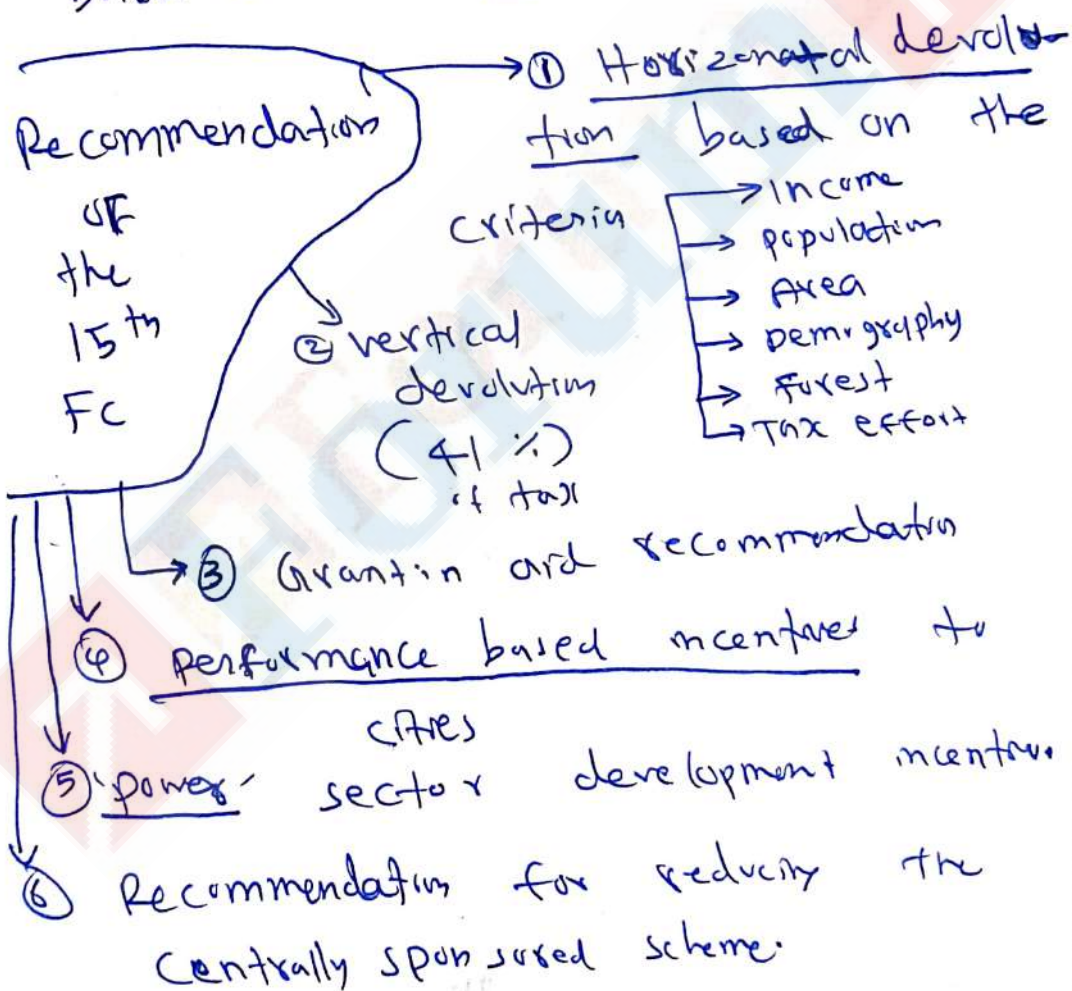 Recommendation
of
the
15th
FC
① Horizonatal devolu-
tion based on the
criteria
Income
population
Area
Demography
Forest
Tax effort
② vertical
devolution
(41 %)
of tax
③ Grant in aid recommendation
④ performance based incentives to
cities
⑤ 'power' sector development incentive.
⑥ Recommendation for reducing the
centrally sponsored scheme.